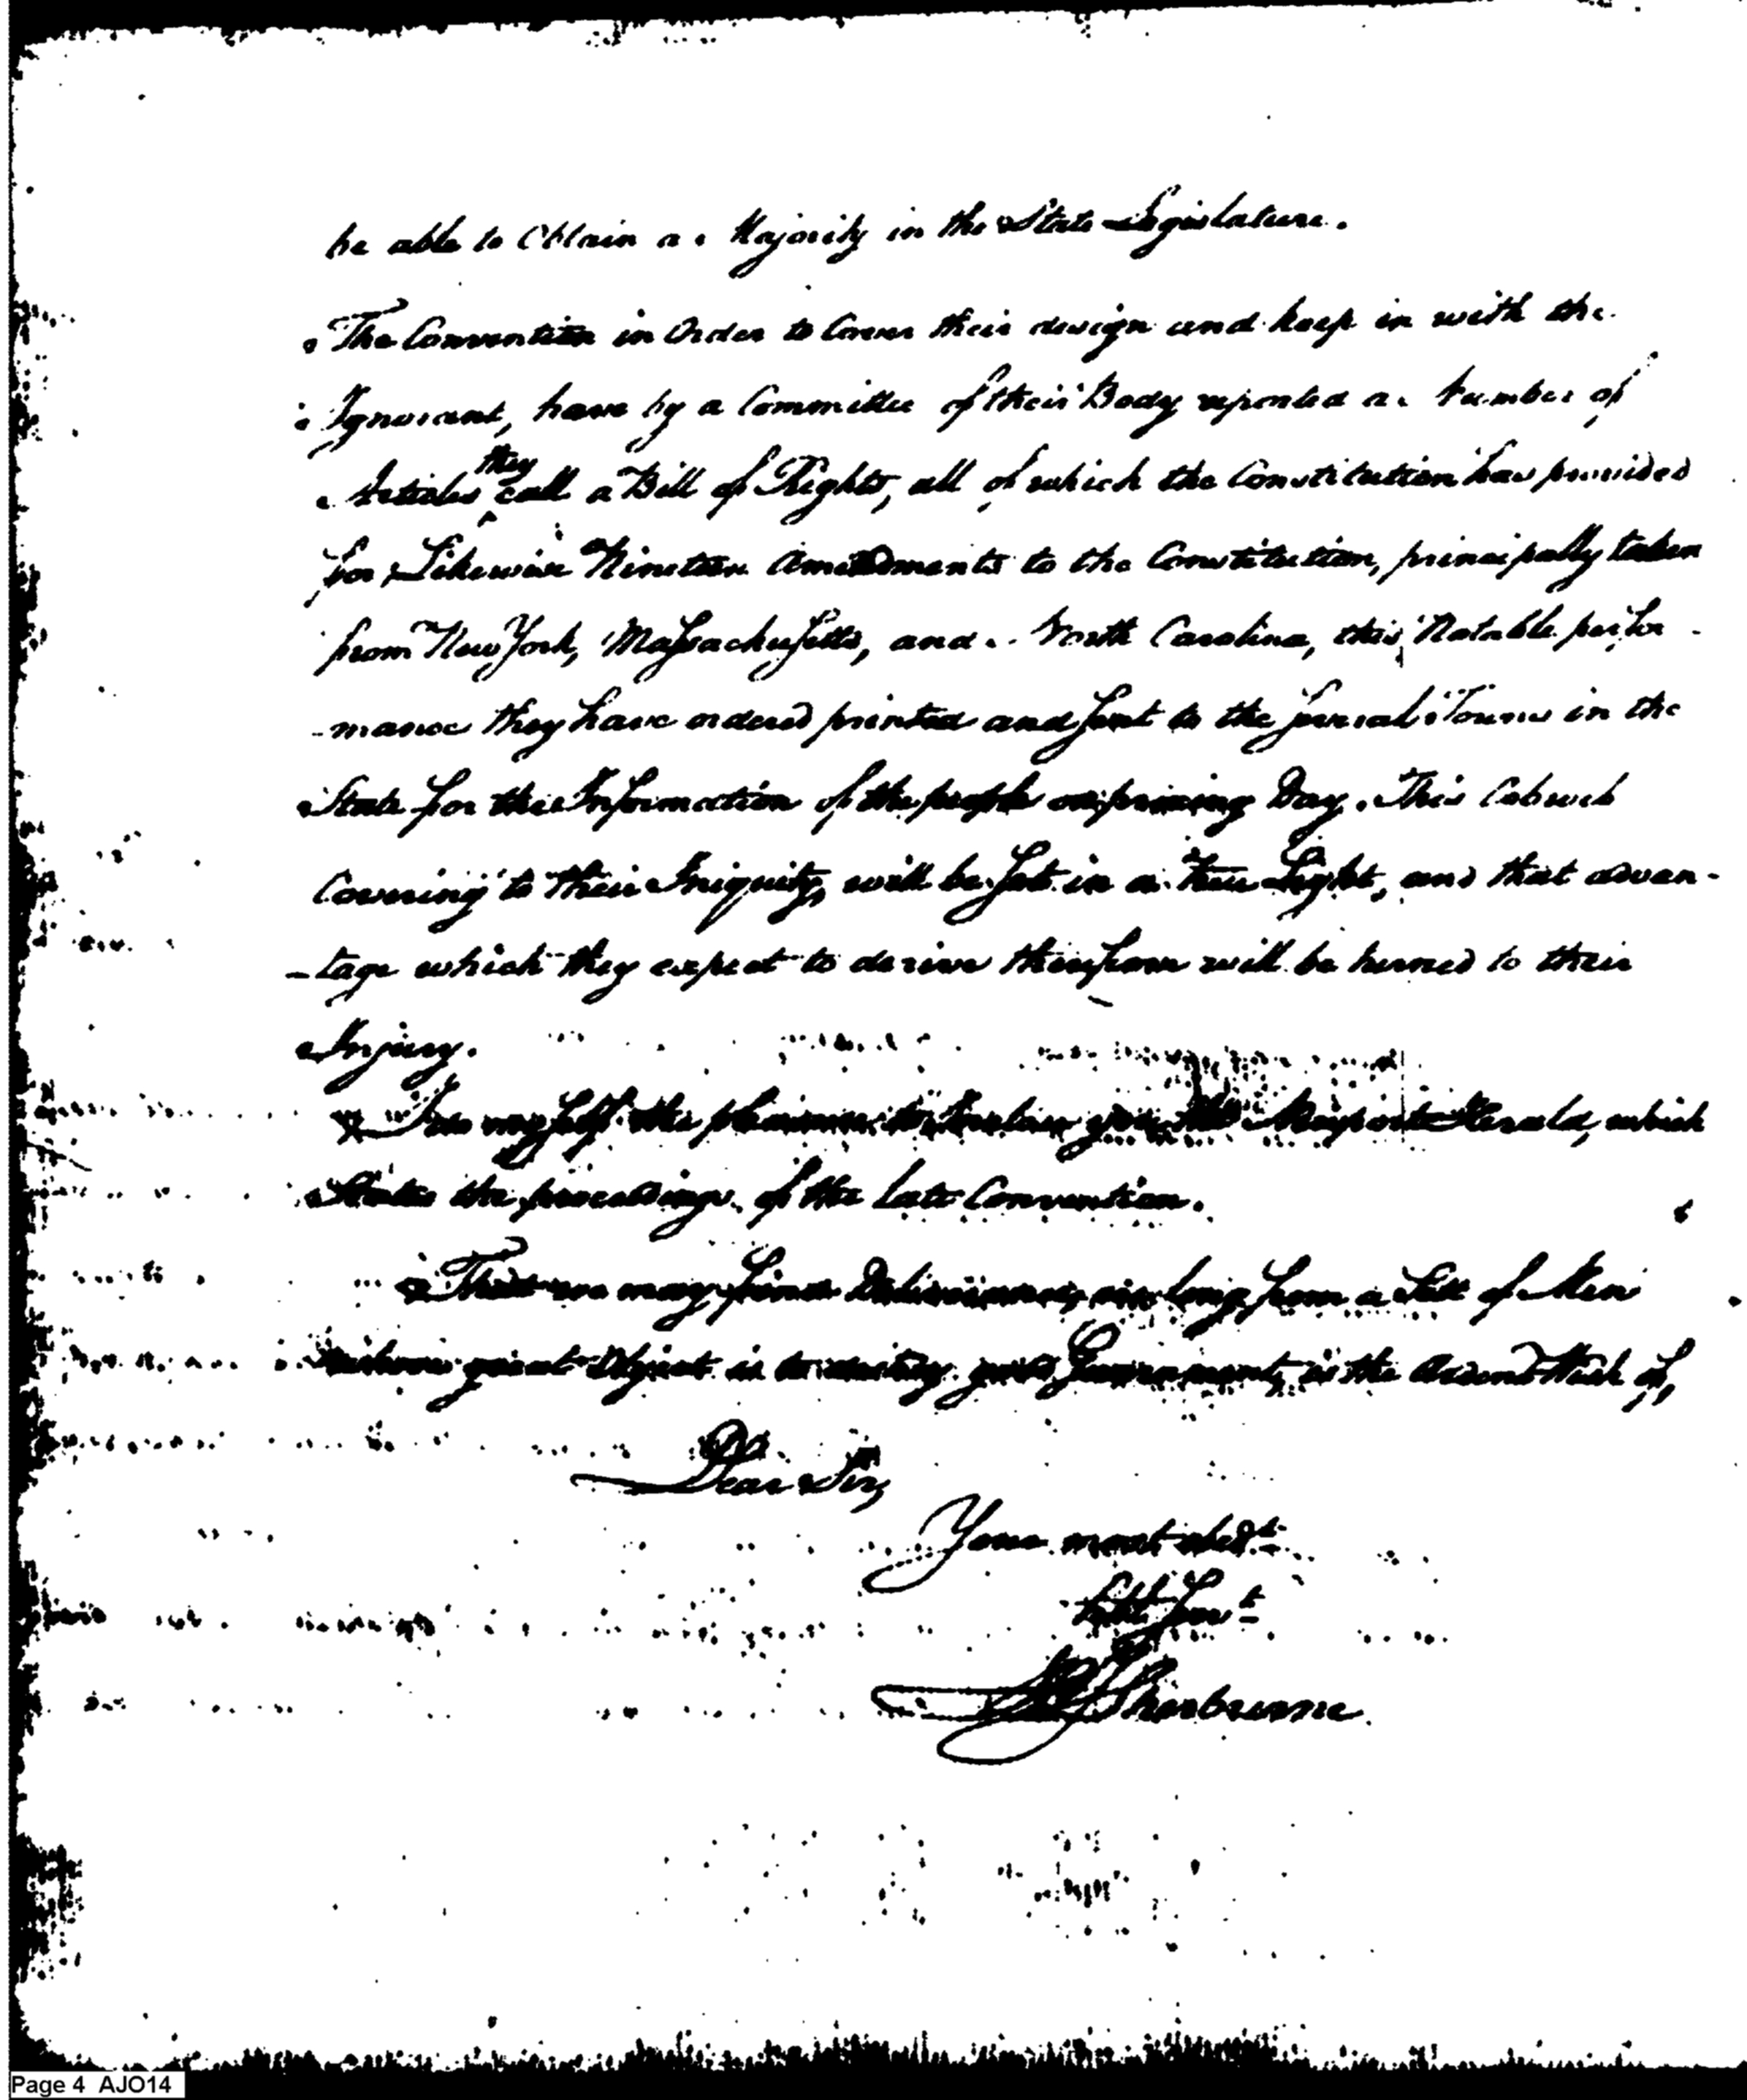 be able to Obtain a Majority in the State Legislature.
The Convention in Order to Cover their design and keep in with the
Ignorant, have by a Committee of their Body reported a Number of
they
Articles call a Bill of Rights, all of which the Constitution has provided
for, Likewise Nineteen Amendments to the Constitution, principally taken
from New York, Massachusetts, and North Carolina, this Notable perfor-
-mance they have ordered printed and sent to the several Towns in the
State for the Information of the people on Day. This Cobweb
Covering to their Iniquity, will be set in a True Light, and that advan-
-tage which they expect to derive therefrom will be turned to their
Injury.
my self the pleasure to Enclose you the Newport Herald, which
States the proceedings of the late Convention.
That we may find Deliverance, long from a Sett of Men
whose great Object is to destroy good Government, is the Ardent Wish of,
Dear Sir,
Your most obedt.
Servt
H Sherburne.
Page 4 AJO14